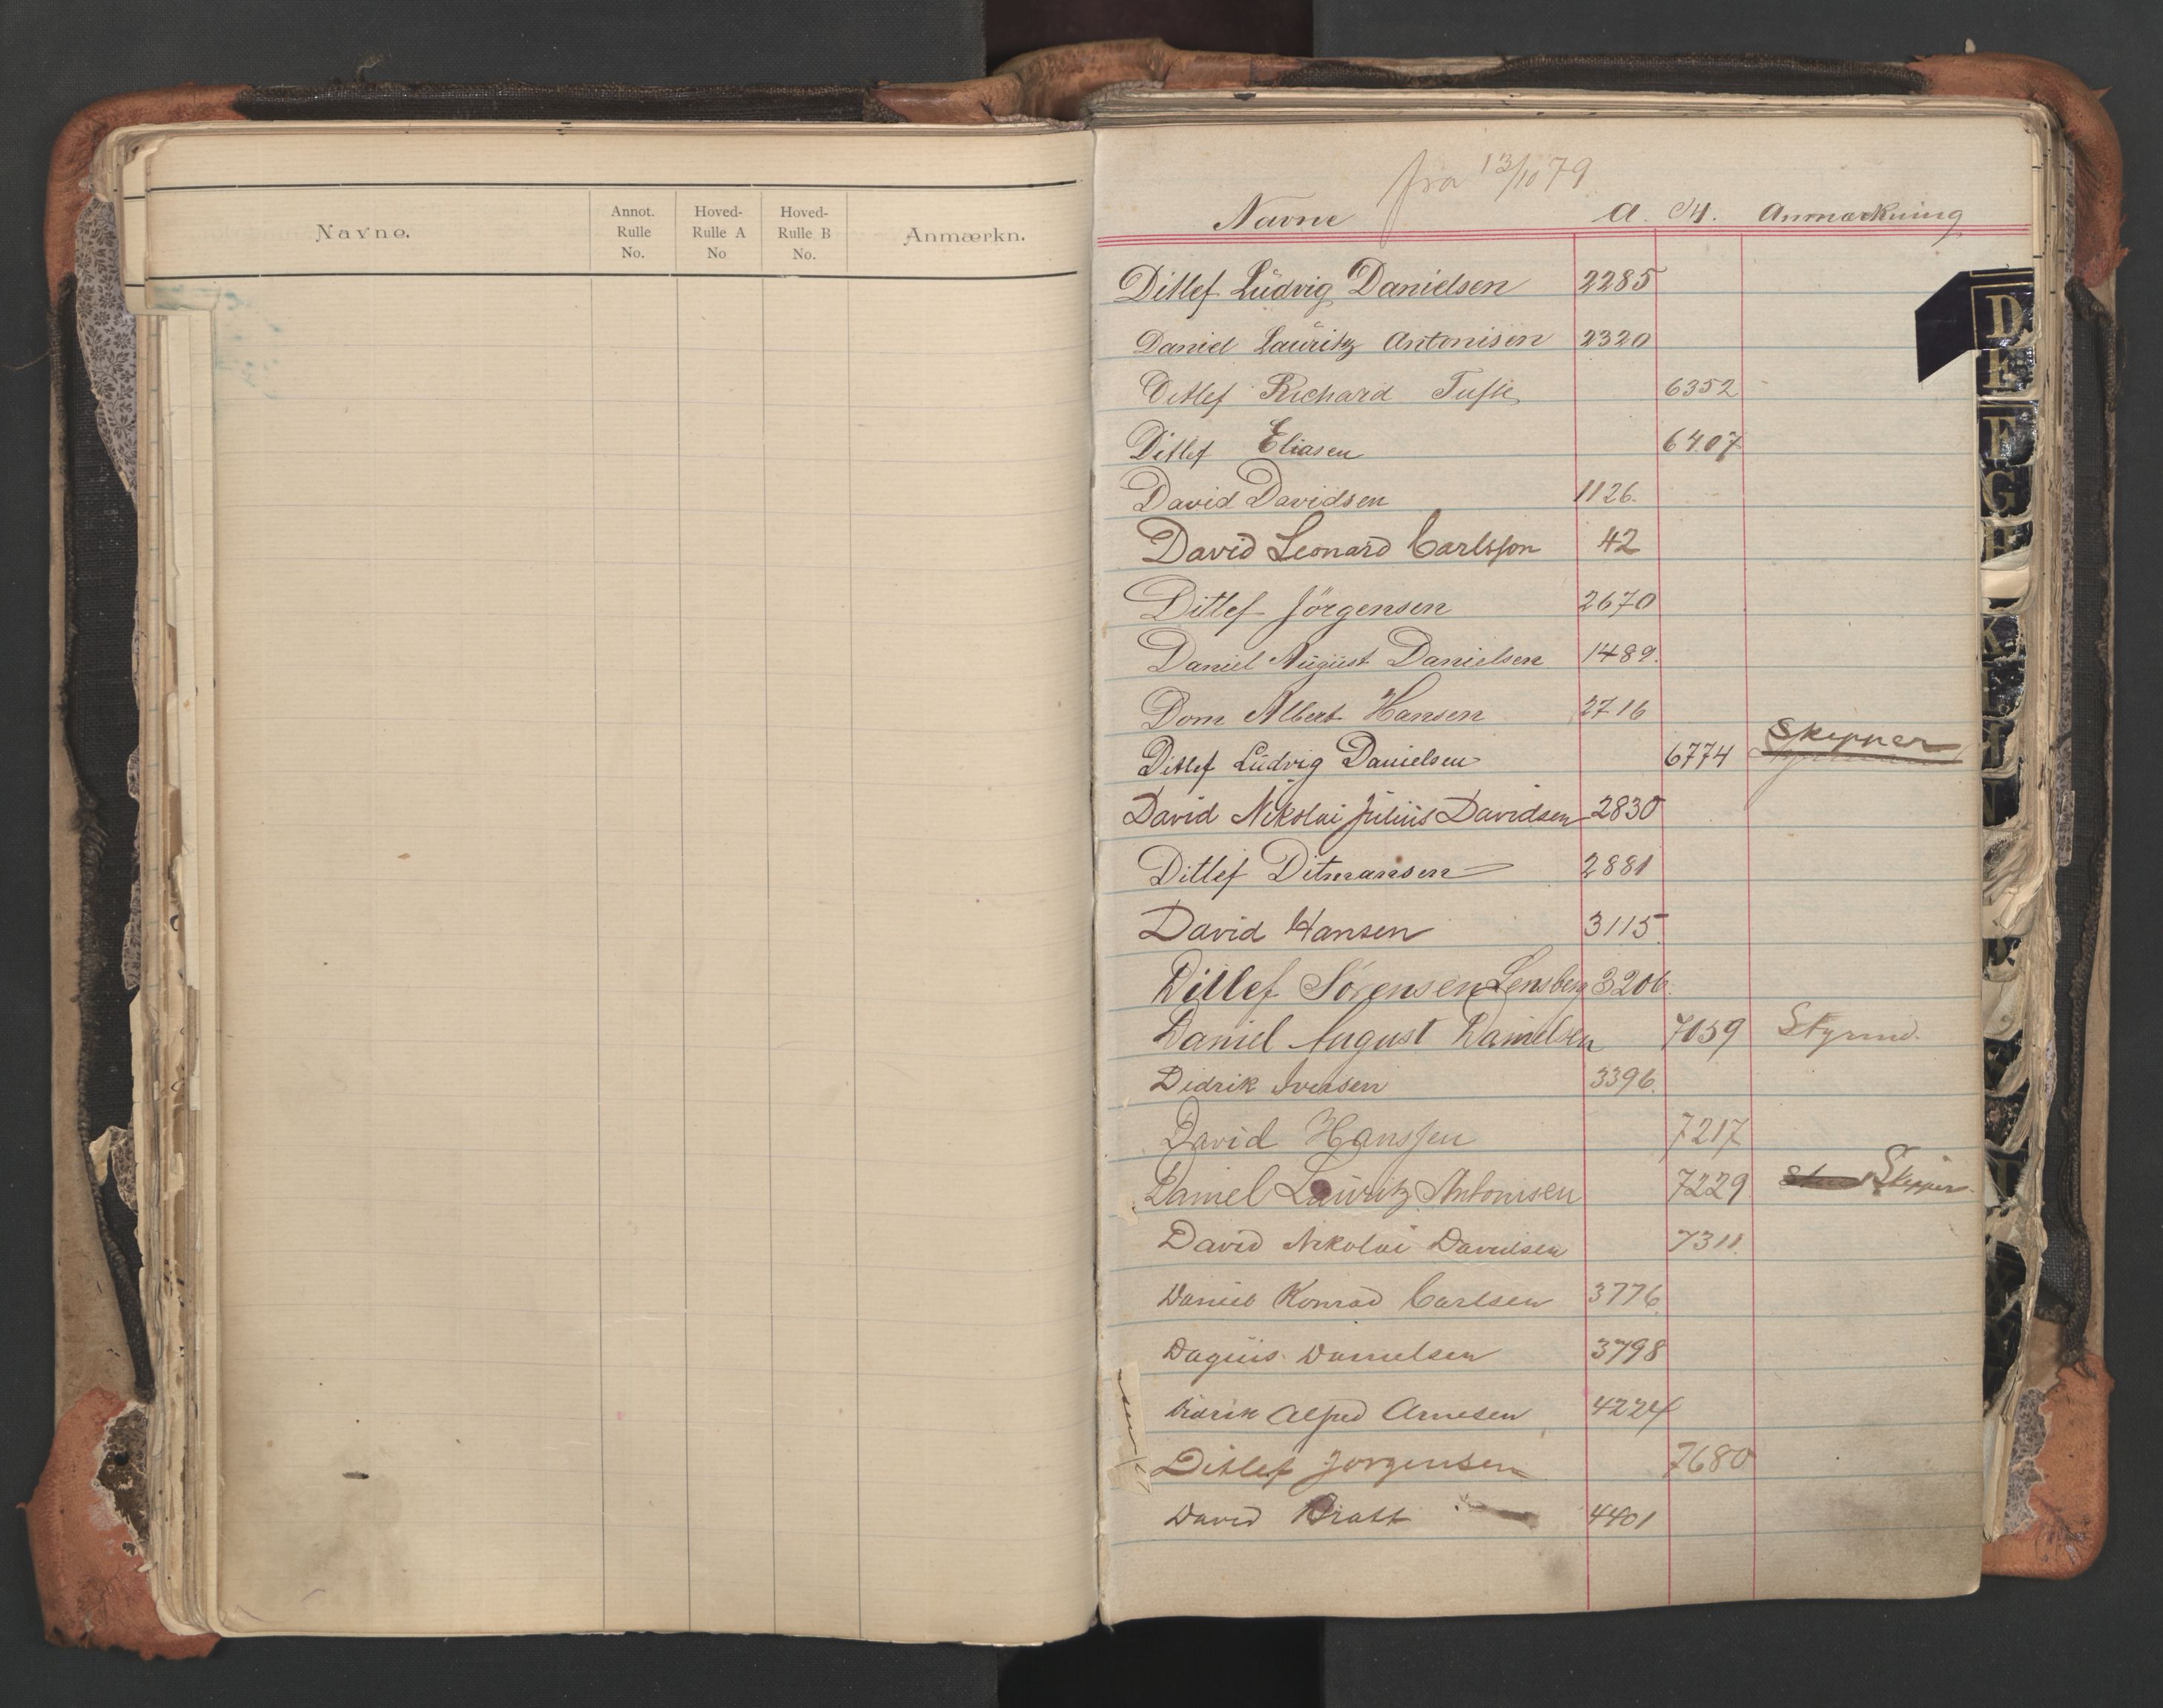 Navne. Annot. Rulle No. Hoved- Rulle A No Hoved- Rulle B No. Anmærkn.
fra 13/10 79
Navne A. M. Anmærkning
Ditlef Ludvig Danielsen 2285
Daniel Lauritz Antonisen 2320
Ditlef Richard Tufte 6352
Ditlef Eliasen 6407
David Davidsen 1126.
David Leonard Carlsson 42
Ditlef Jörgensen 2670
Daniel August Danielsen 1489.
Dom Albert Hansen 2716
Ditlef Ludvig Danielsen 6774 Skipper
David Nikolai Julius Davidsen 2830
Ditlef Ditmansen 2881
David Hansen 3115.
Ditlef Sørensen Lensberg 3206.
Daniel August Danielsen 7059 Styrmd.
Didrik Iversen 3396.
David Hanssen 7217
Daniel Lauritz Antonisen 7229 Skipper
David Nikolai Davidsen 7311.
Daniel Konrad Carlsen 3776.
Dagus Danielsen 3798
Didrik Alfred Arnesen 4224
Ditlef Jorgensen 7680
David Bratt 4401
D
E
F
G
K
N